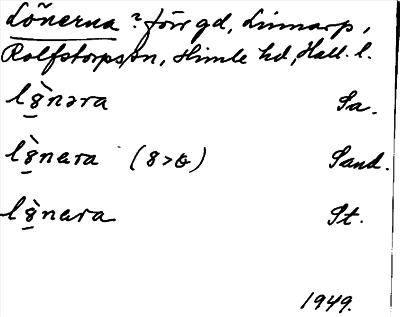 Lönerna ? förr gd, Linnarp,
Rolfstorps sn, Himle hd, Hall. l.
l8̠̀nəra Sa.
l8̠̀nɐra (8>ɵ) Sand.
l8̠̀nɐra St.
1949.